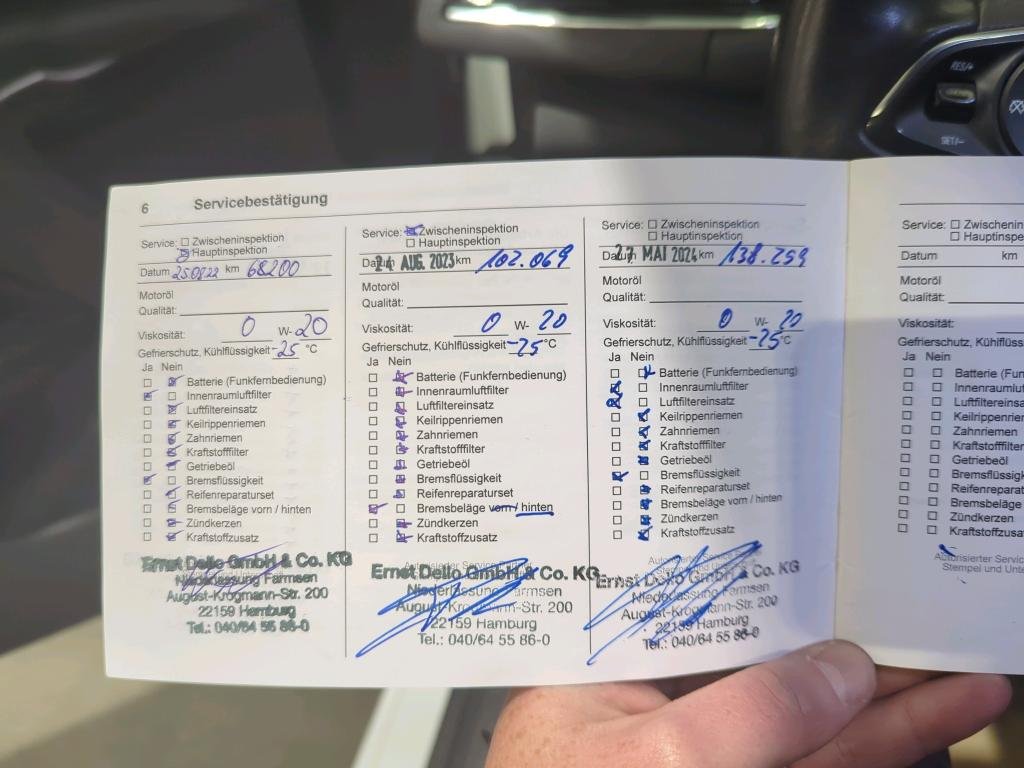 RES/+
SET/-
6 Servicebestätigung
Service: Zwischeninspektion
Hauptinspektion
Datum 250822 km 68200
Motoröl
Qualität:
Viskosität: 0 W- 20
Gefrierschutz, Kühlflüssigkeit -25 °C
Ja Nein
Batterie (Funkfernbedienung)
Innenraumluftfilter
Luftfiltereinsatz
Keilrippenriemen
Zahnriemen
Kraftstofffilter
Getriebeöl
Bremsflüssigkeit
Reifenreparaturset
Bremsbeläge vorn / hinten
Zündkerzen
Kraftstoffzusatz
Ernst Dello GmbH & Co. KG
Niederlassung Farmsen
August-Krogmann-Str. 200
22159 Hamburg
Tel.: 040/64 55 86-0
Service: Zwischeninspektion
Hauptinspektion
Datum 24. AUG. 2023 km 102.069
Motoröl
Qualität:
Viskosität: 0 W- 20
Gefrierschutz, Kühlflüssigkeit -25 °C
Ja Nein
Batterie (Funkfernbedienung)
Innenraumluftfilter
Luftfiltereinsatz
Keilrippenriemen
Zahnriemen
Kraftstofffilter
Getriebeöl
Bremsflüssigkeit
Reifenreparaturset
Bremsbeläge vorn / hinten
Zündkerzen
Kraftstoffzusatz
Ernst Dello GmbH & Co. KG
Niederlassung Farmsen
August-Krogmann-Str. 200
22159 Hamburg
Tel.: 040/64 55 86-0
Service: Zwischeninspektion
Hauptinspektion
Datum 27. MAI 2024 km 138.259
Motoröl
Qualität:
Viskosität: 0 W- 20
Gefrierschutz, Kühlflüssigkeit -25 °C
Ja Nein
Batterie (Funkfernbedienung)
Innenraumluftfilter
Luftfiltereinsatz
Keilrippenriemen
Zahnriemen
Kraftstofffilter
Getriebeöl
Bremsflüssigkeit
Reifenreparaturset
Bremsbeläge vorn / hinten
Zündkerzen
Kraftstoffzusatz
Ernst Dello GmbH & Co. KG
Niederlassung Farmsen
August-Krogmann-Str. 200
22159 Hamburg
Tel.: 040/64 55 86-0
Service: Zwischeninspe
Hauptinspe
Datum km
Motoröl
Qualität:
Viskosität:
Gefrierschutz, Kühlflüss
Ja Nein
Batterie (Funkf
Innenraumluftf
Luftfiltereinsa
Keilrippenriem
Zahnriemen
Kraftstofffilter
Getriebeöl
Bremsflüssigk
Reifenreparatu
Bremsbeläge
Zündkerzen
Kraftstoffzusa
Autorisierter Servic
Stempel und Unte